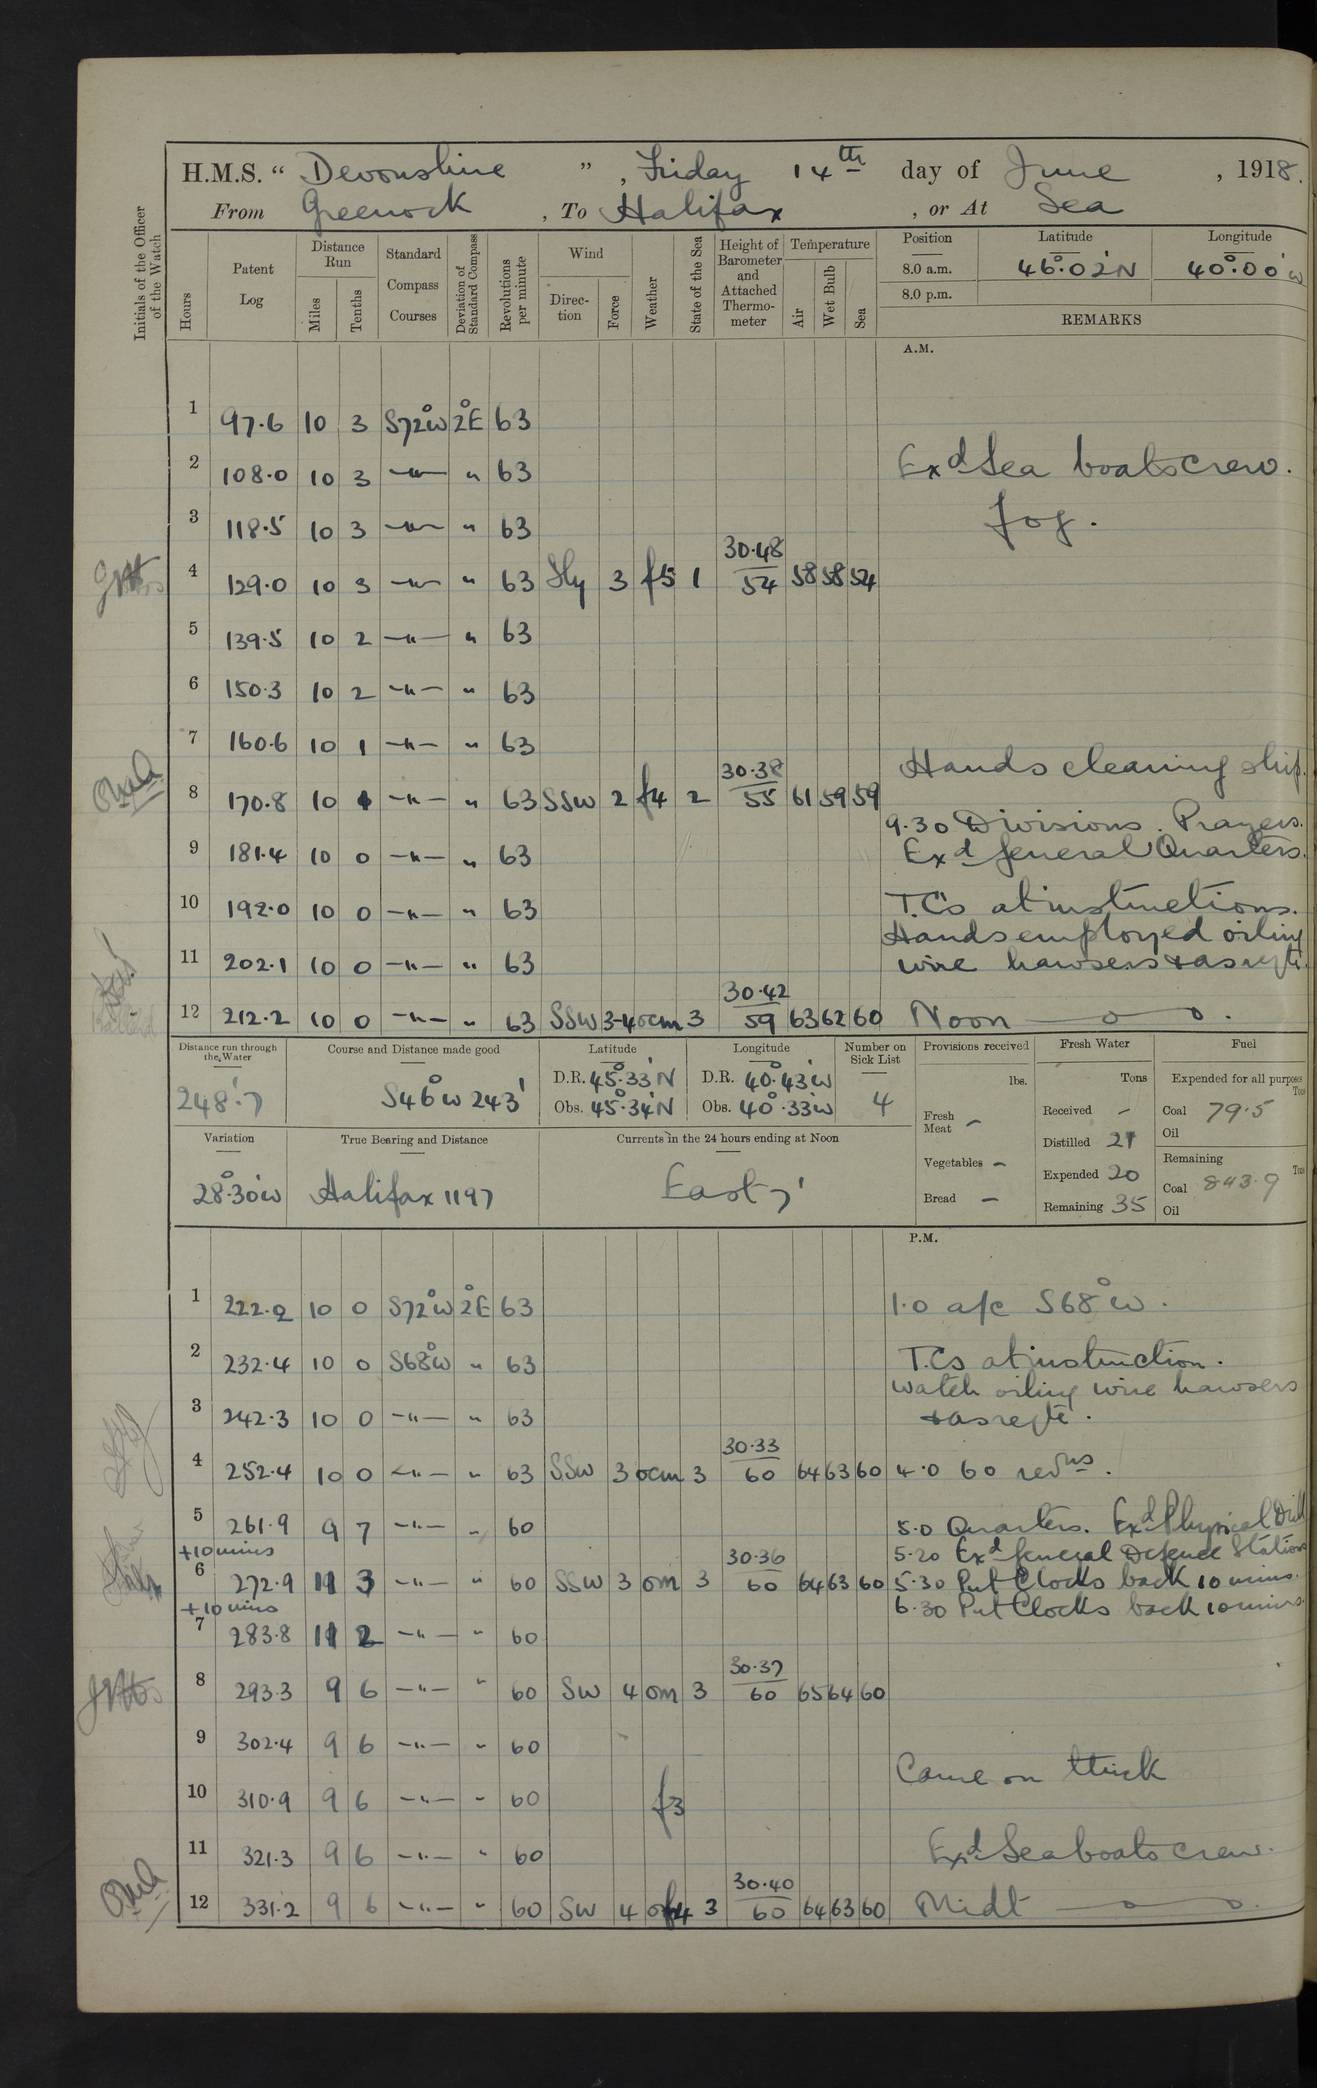 H.M.S. “ Devonshire ” , Friday 14th day of June , 1918.
From Greenock , To Halifax , or At Sea
Initials of the Officer of the Watch
Hours
Patent Log
Distance Run
Miles
Tenths
Standard Compass Courses
Deviation of Standard Compass
Revolutions per minute
Wind
Direc-tion
Force
Weather
State of the Sea
Height of Barometer and Attached Thermo-meter
Temperature
Air
Wet Bulb
Sea
Position
Latitude
Longitude
8.0 a.m. 46°.02'N 40°.00'W
8.0 p.m.
REMARKS
A.M.
1 97.6 10 3 S72°W 2°E 63
2 108.0 10 3 —"— " 63 Exd Sea boats crew.
3 118.5 10 3 —"— " 63 fog.
4 129.0 10 3 —"— " 63 Sly 3 f5 1 30.48 54 58 58 54
5 139.5 10 2 —"— " 63
6 150.3 10 2 —"— " 63
7 160.6 10 1 —"— " 63
Hands cleaning ship.
8 170.8 10 1 —"— " 63 SSW 2 f4 2 30.38 55 61 59 59
9.30 Divisions. Prayers.
9 181.4 10 0 —"— " 63 Exd General Quarters.
10 192.0 10 0 —"— " 63 T.C's at instructions.
Hands employed oiling
11 202.1 10 0 —"— " 63 wire hawsers & as reqte.
12 212.2 10 0 —"— " 63 SSW 3-4 ocm 3 30.42 59 63 62 60 Noon
Distance run through the Water
248'.7
Course and Distance made good
S46°W 243'
Latitude
D.R. 45°.33'N
Obs. 45°.34'N
Longitude
D.R. 40°.43'W
Obs. 40°.33'W
Number on Sick List
4
Provisions received
lbs.
Fresh Meat –
Vegetables –
Bread –
Fresh Water
Tons
Received –
Distilled 21
Expended 20
Remaining 35
Fuel
Expended for all purposes
Tons
Coal 79.5
Oil
Remaining
Tons
Coal 843.9
Oil
Variation
28°.30'W
True Bearing and Distance
Halifax 1197
Currents in the 24 hours ending at Noon
East 7'
P.M.
1 222.2 10 0 S72°W 2°E 63 1.0 a/c S68°W.
2 232.4 10 0 S68°W " 63 T.Cs at instruction.
Watch oiling wire hawsers
3 242.3 10 0 —"— " 63 & as reqte.
4 252.4 10 0 —"— " 63 SSW 3 ocm 3 30.33 60 64 63 60 4.0 60 revns.
5 261.9 9 7 —"— " 60 5.0 Quarters. Exd Physical Drill
+10 mins 5.20 Exd General Defence Stations
6 272.9 11 3 —"— " 60 SSW 3 om 3 30.36 60 64 63 60 5.30 Put Clocks back 10 mins.
+10 mins 6.30 Put Clocks back 10 mins.
7 283.8 11 2 —"— " 60
8 293.3 9 6 —"— " 60 SW 4 om 3 30.37 60 65 64 60
9 302.4 9 6 —"— " 60
Came on thick
10 310.9 9 6 —"— " 60 f3
11 321.3 9 6 —"— " 60 Exd Seaboats crew.
12 331.2 9 6 —"— " 60 SW 4 of4 3 30.40 60 64 63 60 Midt